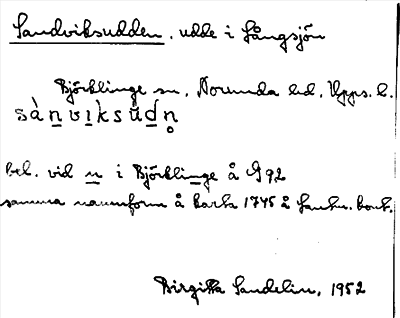 Sandviksudden, udde i Långsjön
Björklinge sn, Norunda hd, Upps. l.
sànviksŭdn̥
bel. vid n i Björklinge å G 92
samma namnform å karta 1745 å Lantm. kont.
Birgitta Sandelin, 1952